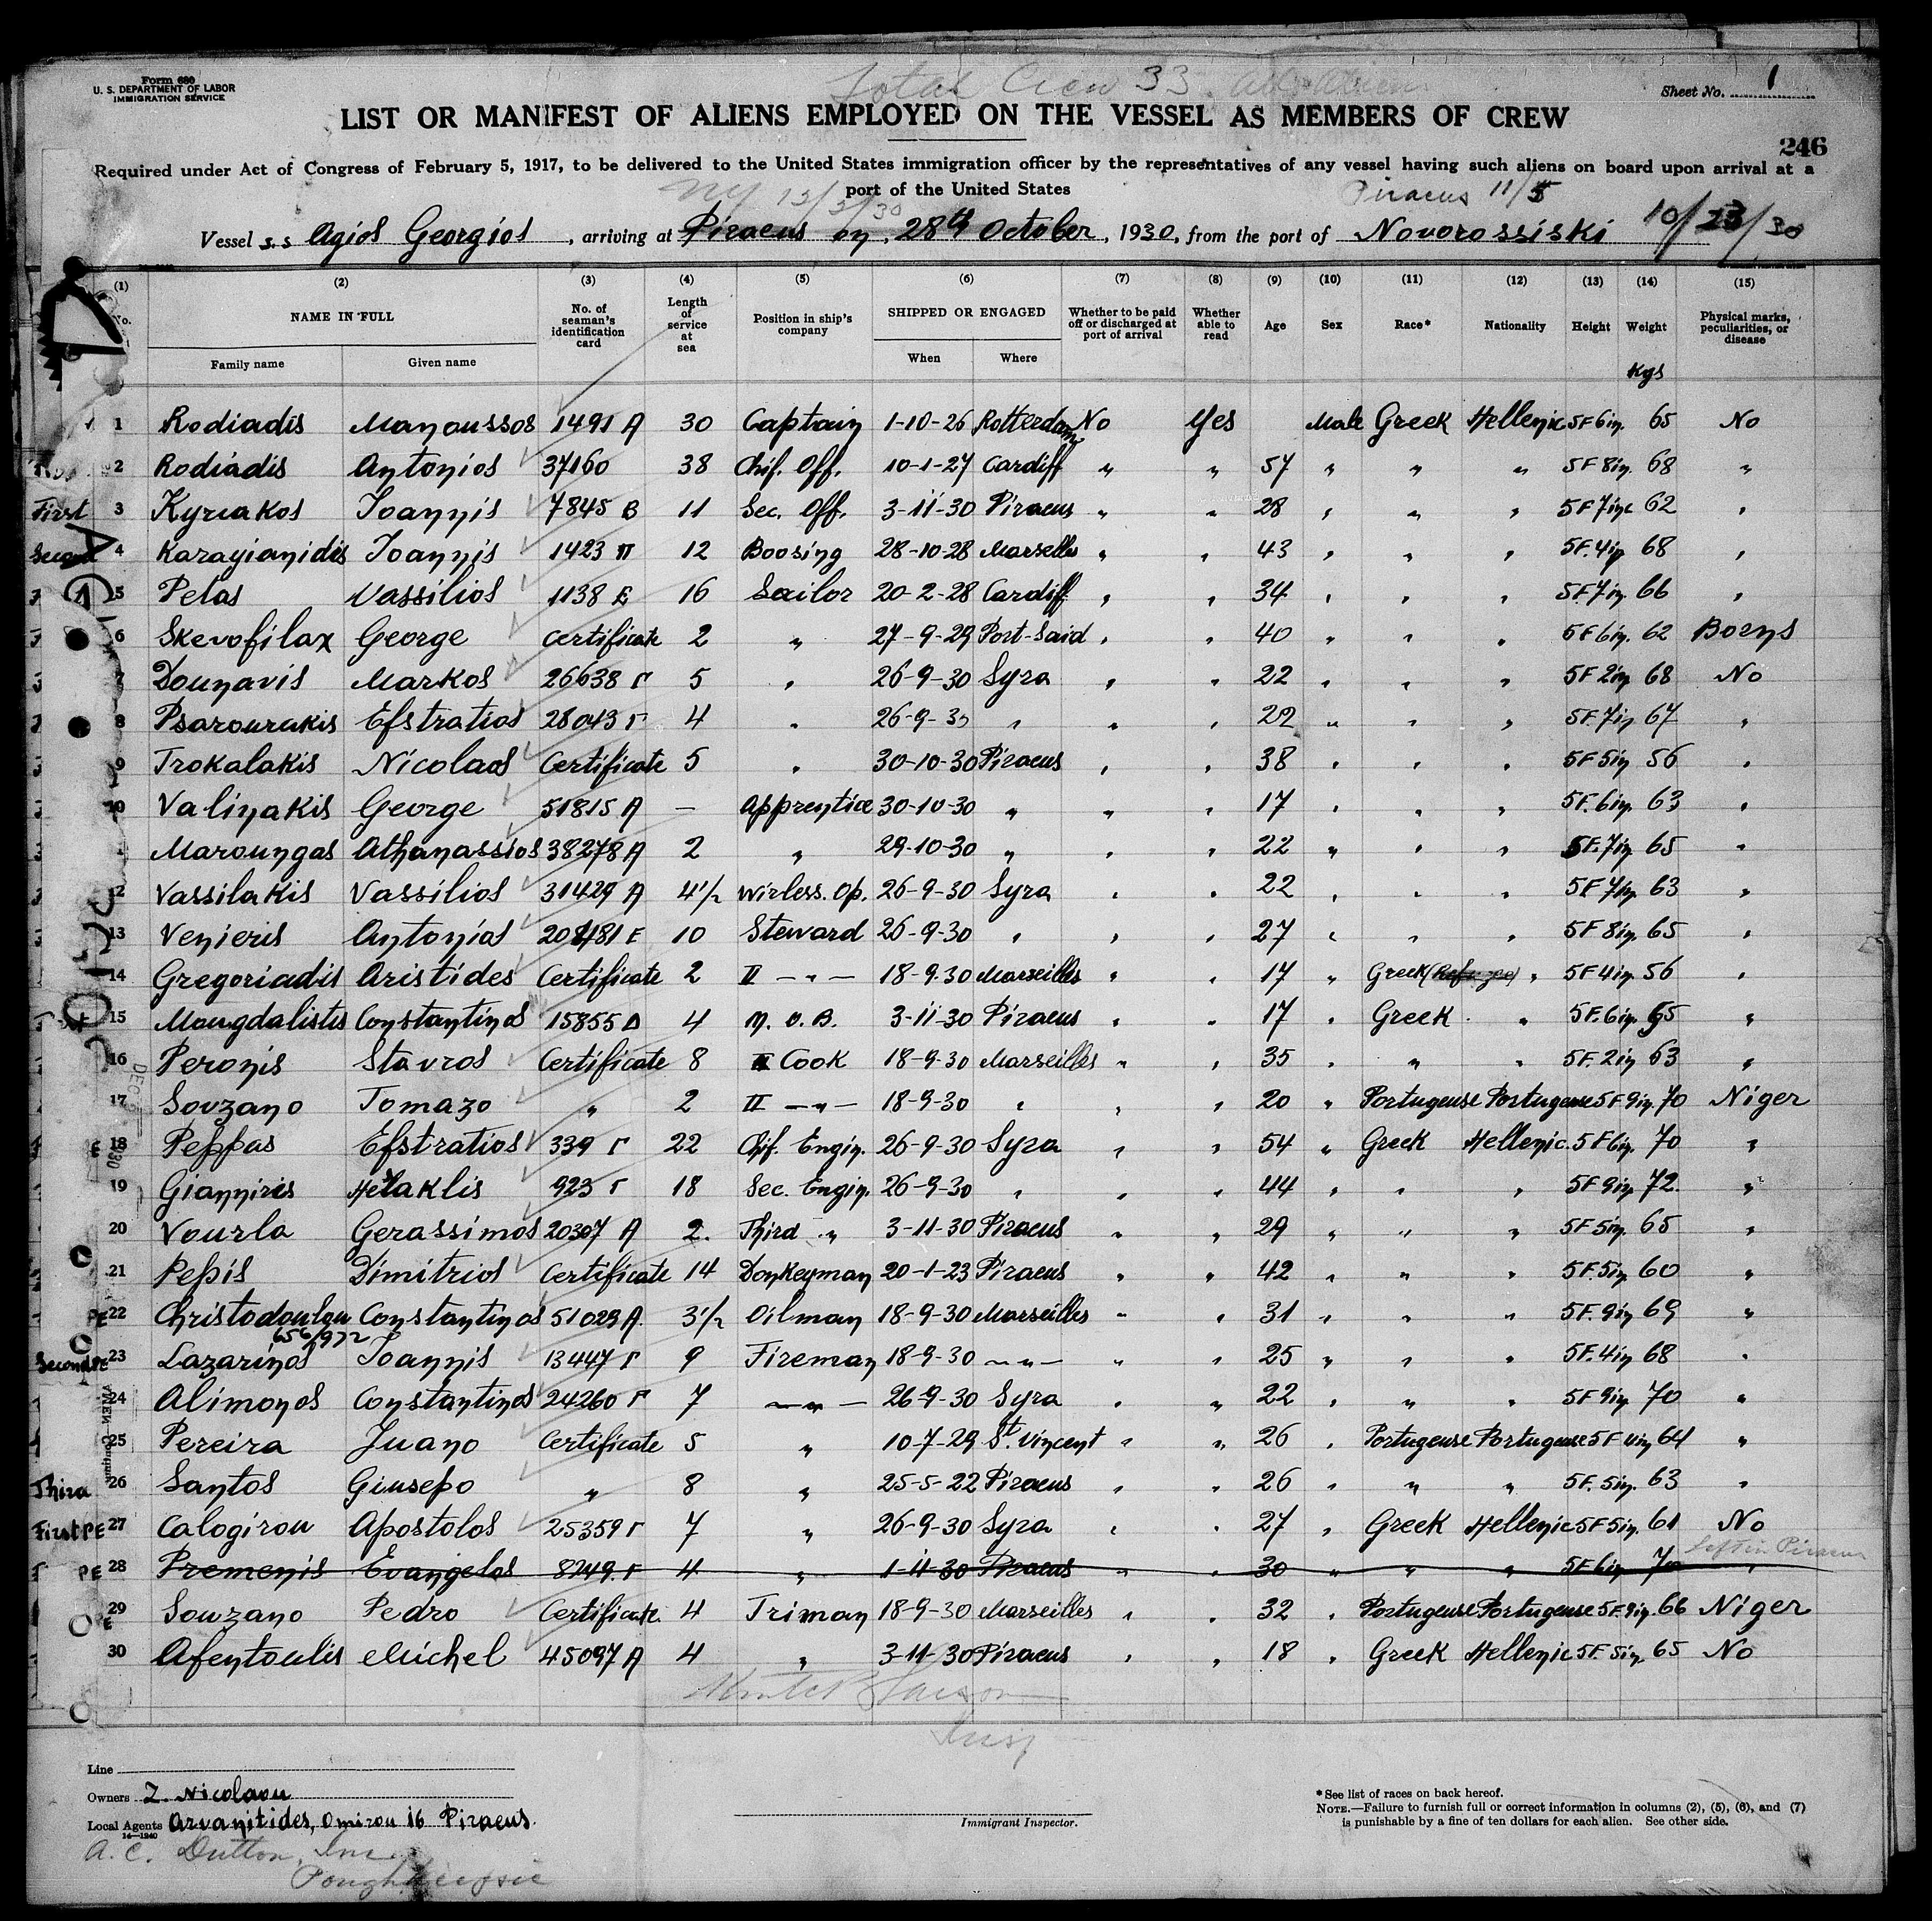 Form 680
U. S. DEPARTMENT OF LABOR
IMMIGRATION SERVICE
Total Crew 33
Sheet No. 1
LIST OR MANIFEST OF ALIENS EMPLOYED ON THE VESSEL AS MEMBERS OF CREW
246
Required under Act of Congress of February 5, 1917, to be delivered to the United States immigration officer by the representatives of any vessel having such aliens on board upon arrival at a
port of the United States
NY 12/2/30 Piraeus 11/5
Vessel s.s Agios Georgios, arriving at Piraeus on, 28th October, 1930, from the port of Novorossiski 10/23/30
(1) (2) (3) (4) (5) (6) (7) (8) (9) (10) (11) (12) (13) (14) (15)
No. NAME IN FULL No. of seaman's identification card Length of service at sea Position in ship's company SHIPPED OR ENGAGED Whether to be paid off or discharged at port of arrival Whether able to read Age Sex Race* Nationality Height Weight Physical marks, peculiarities, or disease
Family name Given name When Where
Kgs
1 Rodiadis Manoussos 1491 A 30 Captain 1-10-26 Rotterdam No Yes Male Greek Hellenic 5F 6in. 65 No
2 Rodiadis Antonios 37160 38 Chif. Off. 10-1-27 Cardiff " " 57 " " " 5F 8in. 68 "
First 3 Kyriakos Ioannis 7845 B 11 Sec. Off. 3-11-30 Piraeus " " 28 " " " 5F 7inc 62 "
Second 4 Karayianidis Ioannis 1423 π 12 Boosing 28-10-28 Marselles " " 43 " " " 5F. 4in 68 "
5 Pelas Vassilios 1138 E 16 Sailor 20-2-28 Cardiff " " 34 " " " 5F. 7in. 66 "
6 Skevofilax George Certificate 2 " 27-9-29 Port-Said " " 40 " " " 5F 6in. 62 Borns
7 Dounavis Markos 26638 Γ 5 " 26-9-30 Syra " " 22 " " " 5F 2in 68 No
8 Psarourakis Efstratios 28043 Γ 4 " 26-9-30 " " " 22 " " " 5F. 7in 67 "
9 Trokalakis Nicolaos Certificate 5 " 30-10-30 Piraeus " " 38 " " " 5F 5in 56 "
10 Valinakis George 51815 A — Apprentice 30-10-30 " " " 17 " " " 5F. 6in. 63 "
Maroungas Athanassios 38278 A 2 " 29-10-30 " " " 22 " " " 5F. 7in. 65 "
2 Vassilakis Vassilios 31429 A 4 1/2 Wirless. Op. 26-9-30 Syra " " 22 " " " 5F 7in 63 "
13 Venieris Antonios 208481 E 10 Steward 26-9-30 " " " 27 " " " 5F 8in. 65 "
14 Gregoriadis Aristides Certificate 2 II — " — 18-9-30 Marseilles " " 17 " Greek (Refugee) " 5F 4in. 56 "
15 Mougdalistis Constantinos 15855 Δ 4 M. O. B. 3-11-30 Piraeus " " 17 " Greek " 5F. 6in. 65 "
16 Peronis Stavros Certificate 8 Cook 18-9-30 Marseilles " " 35 " " " 5F. 2in 63 "
17 Souzano Tomazo " 2 II — " — 18-9-30 " " " 20 " Portugeuse Portugeuse 5F 9in. 70 Niger
18 Peppas Efstratios 339 Γ 22 Chf. Engin. 26-9-30 Syra " " 54 " Greek Hellenic 5F 6in. 70 "
19 Gianniris Heraklis 923 Γ 18 Sec. Engin. 26-9-30 " " " 44 " " " 5F 9in. 72 "
20 Vourla Gerassimos 20307 A 2. Third " 3-11-30 Piraeus " " 29 " " " 5F 5in. 65 "
21 Pepis Dimitrios Certificate 14 Donkeyman 20-1-23 Piraeus " " 42 " " " 5F. 5in. 60 "
PE 22 Christodoulou Constantinos 51029 A. 3 1/2 Oilman 18-9-30 Marseilles " " 31 " " " 5F. 9in. 69 "
656/972
Second PE 23 Lazarinos Ioannis 13447 Γ 9 Fireman 18-9-30 — " — " " 25 " " " 5F. 4in 68 "
24 Alimonos Constantinos 24260 Γ 7 — " — 26-9-30 Syra " " 22 " " " 5F 9in. 70 "
25 Pereira Juano Certificate 5 " 10-7-29 St. Vincent " " 26 " Portugeuse Portugeuse 5F 64 "
Third 26 Santos Giusepo " 8 " 25-5-22 Piraeus " " 26 " " " 5F. 5in. 63 "
First PE 27 Calogirou Apostolos 25359 Γ 7 " 26-9-30 Syra " " 27 " Greek Hellenic 5F 5in. 61 No
PE 28 Premenis Evangelos 8249. Γ 4 " 1-11-30 Piraeus " " 30 " " " 5F 6in 70 "
Left in Piraeus
29 Souzano Pedro Certificate. 4 Triman 18-9-30 Marseilles " " 32 " Portugeuse Portugeuse 5F. 9in. 66 Niger
30 Afentoulis Michel 45097 A 4 " 3-11-30 Piraeus " " 18 " Greek Hellenic 5F. 5in. 65 No
Insp
Line
Owners Z. Nicolaou
Local Agents Arvanitides, Omirou 16 Piraeus.
14—1240
A. C. Dutton, Inc
Poughkeepsie
Immigrant Inspector.
*See list of races on back hereof.
NOTE.—Failure to furnish full or correct information in columns (2), (5), (6), and (7)
is punishable by a fine of ten dollars for each alien. See other side.